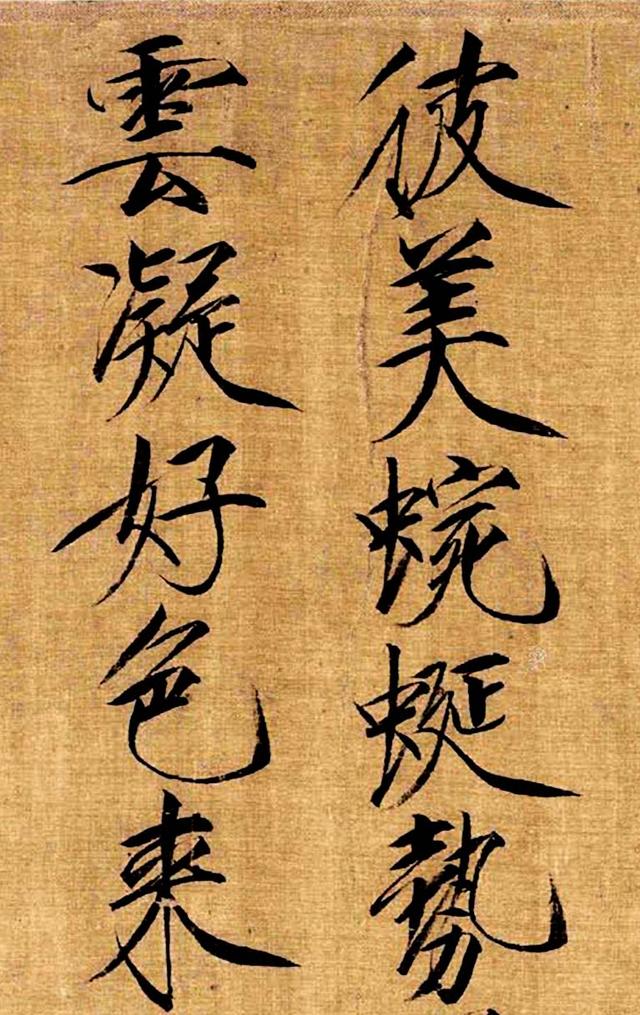 彼美蜿蜒勢
雲凝好色來